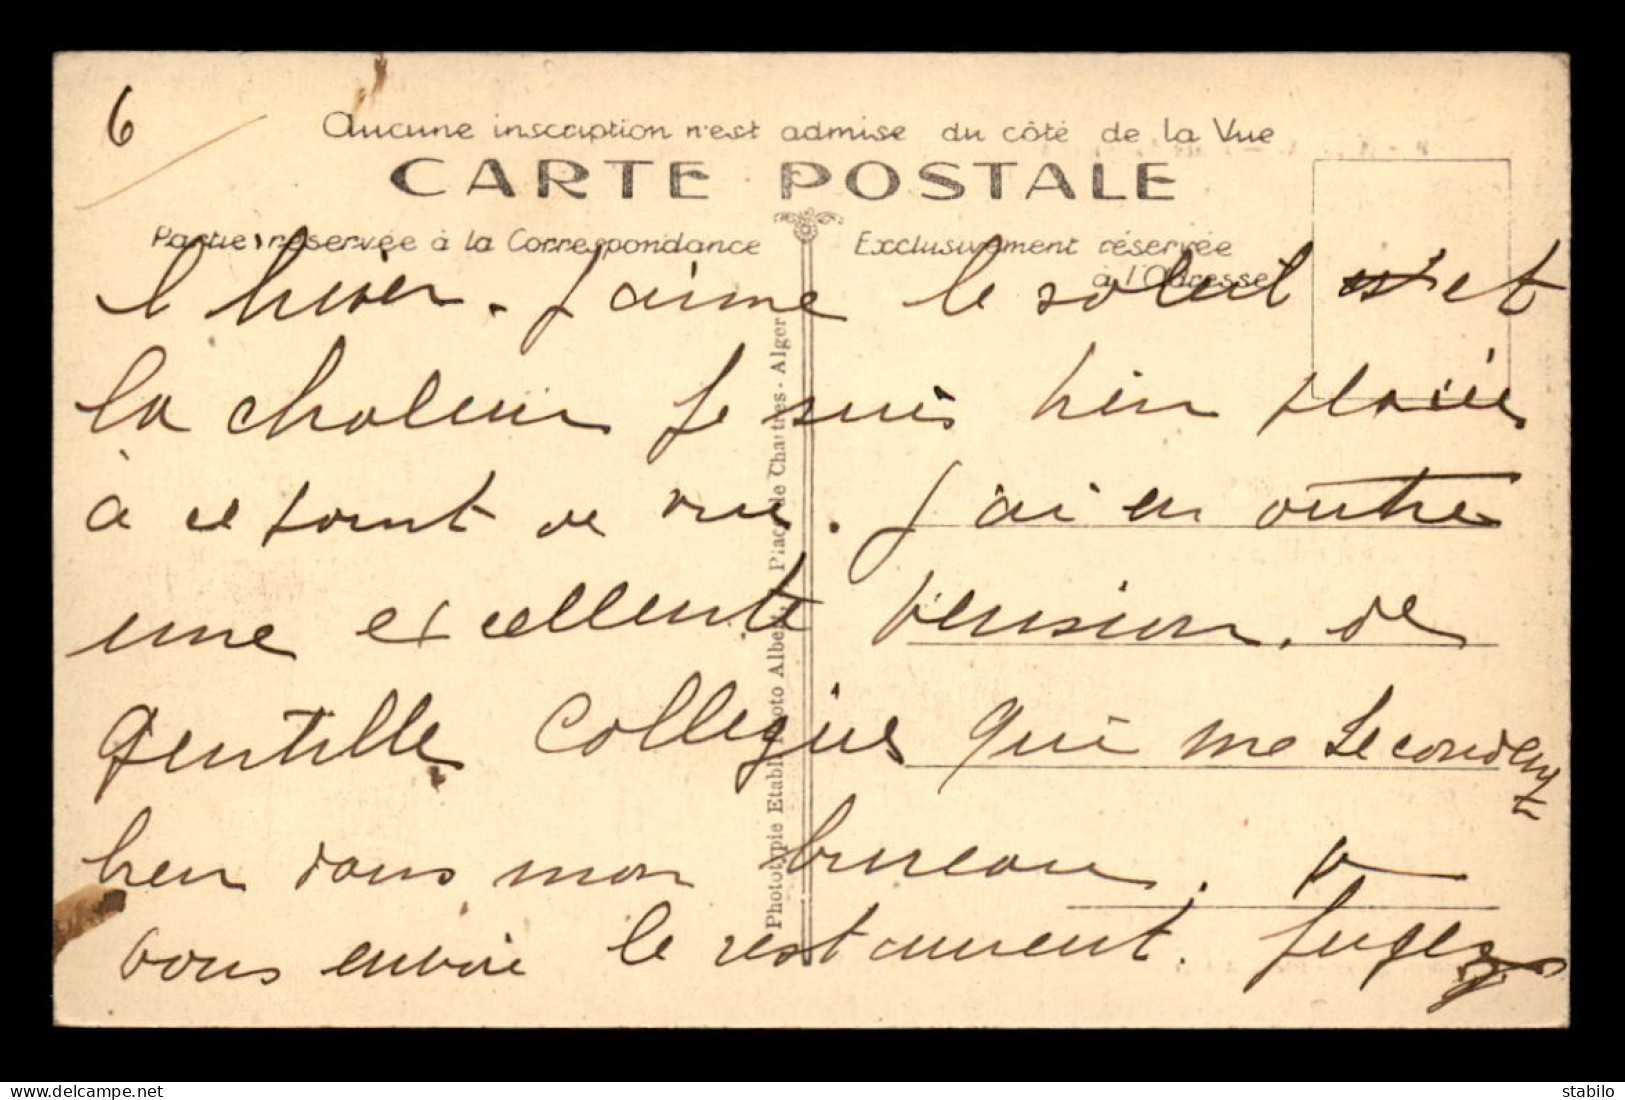 6
Aucune inscription n'est admise du côté de la Vue
CARTE POSTALE
Partie réservée à la Correspondance
Exclusivement réservée
à l'Adresse
l'hiver. J'aime le soleil est et
la chaleur je suis bien placée
à ce point de vue. J'ai en outre
une excellente pension, de
gentille collegues qui me secondent
bien dans mon bureau. Je
vous envoie le restaurent. Jugez
Phototypie Etabl. Photo Albert, Place de Chartres - Alger
stabilo